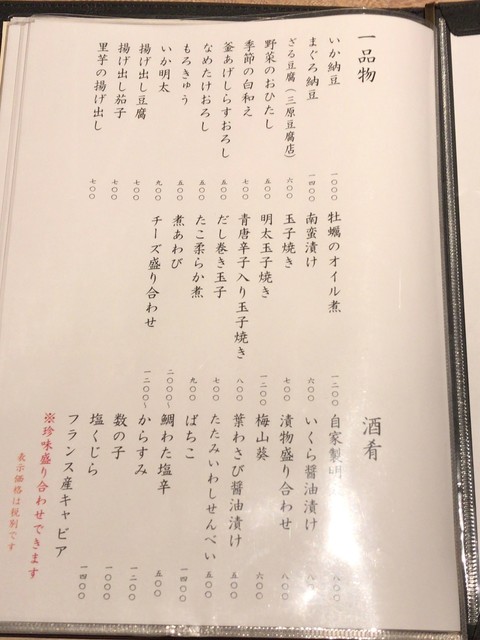 一品物
いか納豆 一〇〇〇
まぐろ納豆 一四〇〇
ざる豆腐(三原豆腐店) 六〇〇
野菜のおひたし 五〇〇
季節の白和え 七〇〇
釜あげしらすおろし 五〇〇
なめたけおろし 五〇〇
もろきゅう 五〇〇
いか明太 九〇〇
揚げ出し豆腐 七〇〇
揚げ出し茄子 七〇〇
里芋の揚げ出し 七〇〇
牡蠣のオイル煮 一二〇〇
南蛮漬け 六〇〇
玉子焼き 七〇〇
明太玉子焼き 一二〇〇
青唐辛子入り玉子焼き 八〇〇
だし巻き玉子
たこ柔らか煮 九〇〇
煮あわび 二〇〇〇〜
チーズ盛り合わせ 一二〇〇〜
酒肴
自家製 八〇〇
いくら醤油漬け
漬物盛り合わせ 八〇〇
梅山葵 六〇〇
葉わさび醤油漬け 五〇〇
たたみいわしせんべい 五〇〇
ばちこ 一四〇〇
鯛わた塩辛 五〇〇
からすみ 一二〇〇
数の子 一〇〇〇
塩くじら 一四〇〇
フランス産キャビア
※珍味盛り合わせできます
表示価格は税別です